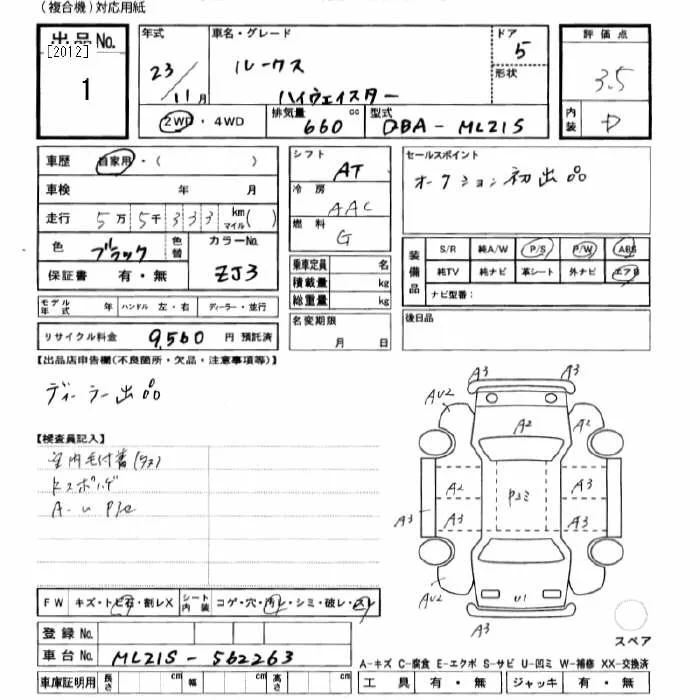 (複合機)対応用紙
出品No.
[2012]
1
年式
23/11月
車名・グレード
ルークス
ハイウェイスター
ドア
5
形状
評価点
3.5
内装
D
2WD・4WD
排気量
660 cc
型式
DBA-ML21S
車歴 自家用・( )
車検 年 月
走行 5万5千333 km マイル( )
色 ブラック 色替
カラーNo.
ZJ3
保証書 有・無
シフト
AT
冷房
AAC
燃料
G
乗車定員 名
積載量 kg
総重量 kg
セールスポイント
オークション初出品
装備品
S/R 純A/W P/S P/W ABS
純TV 純ナビ 革シート 外ナビ エアB
ナビ型番:
モデル年式 年 ハンドル 左・右 ディーラー・並行
リサイクル料金 9,560 円 預託済
名変期限
月 日
後日品
【出品店申告欄(不良箇所・欠品・注意事項等)】
ディーラー出品
【検査員記入】
A3 A3
AU2
A2
A2 Pコミ A3
A3 A3 A3
AU2 U1
A3
スペア
FW キズ・トビ石・割レX シート内装 コゲ・穴・汚レ・シミ・破レ・スレ
登録No.
車台No. ML21S-562263
車庫証明用 長さ cm 幅 cm 高さ cm
A-キズ C-腐食 E-エクボ S-サビ U-凹ミ W-補修 XX-交換済
工具 有・無 ジャッキ 有・無